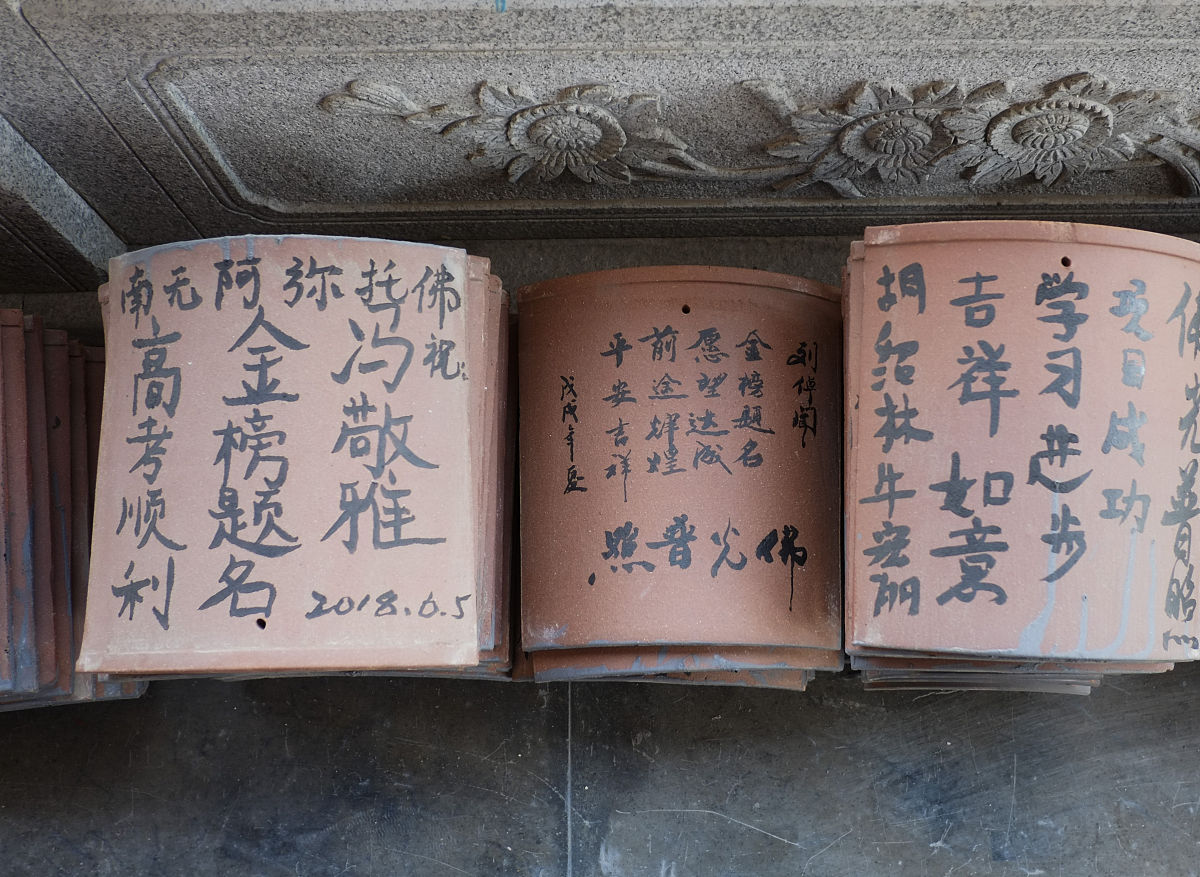 南无阿弥托佛
祝:
冯敬雅
金榜题名
高考顺利
2018.6.5
金榜题名
愿望达成
前途辉煌
平安吉祥
戊戌年夏
佛光普照
佛光普照
项目成功
学习进步
吉祥如意
胡绍林牛宏丽